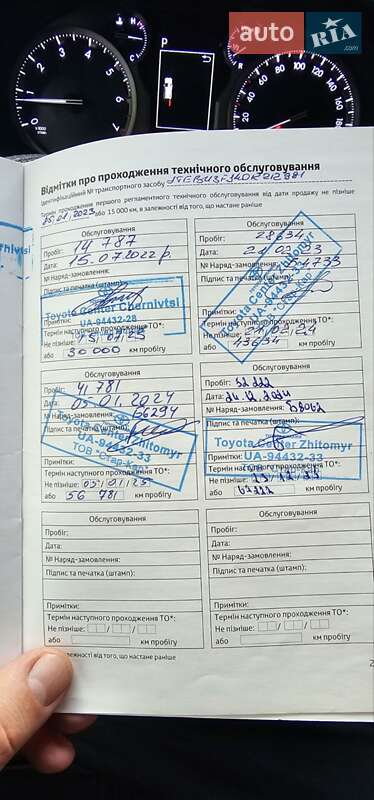 auto RIA
.com
P
Відмітки про проходження технічного обслуговування
Ідентифікаційний № транспортного засобу
Термін проходження першого регламентного технічного обслуговування від дати продажу не пізніше
15.01.2023 або 15 000 км, в залежності від того, що настане раніше
Обслуговування
Пробіг: 14 787
Дата: 15.07.2022 р.
№ Наряд-замовлення:
Підпис та печатка (штамп):
Toyota Center Chernivtsi
UA-94432-28
Термін наступного проходження ТО*:
Не пізніше: 15/01/23
або 30 000 км пробігу
Обслуговування
Пробіг: 28634
Дата:
№ Наряд-замовлення:
Підпис та печатка (штамп):
Toyota Center Zhitomyr
UA-94432-33
або 43634 км пробігу
Обслуговування
Пробіг: 41 781
Дата: 05.01.2024
№ Наряд-замовлення: 66294
Підпис та печатка
Toyota Center Zhitomyr
UA-94432-33
ТОВ "Стар-Кар"
Примітки:
Термін наступного проходження ТО*:
Не пізніше: 05/01/25
або 56 781 км пробігу
Обслуговування
Пробіг: 52 222
Дата:
№ Наряд-замовлення:
Підпис та печатка (штамп):
Toyota Center Zhitomyr
Примітки: UA-94432-33
Термін наступного проходження ТО*:
Не пізніше:
або км пробігу
Обслуговування
Пробіг:
Дата:
№ Наряд-замовлення:
Підпис та печатка (штамп):
Примітки:
Термін наступного проходження ТО*:
Не пізніше: / /
або км пробігу
Обслуговування
Пробіг:
Дата:
№ Наряд-замовлення:
Підпис та печатка (штамп):
Примітки:
Термін наступного проходження ТО*:
Не пізніше: / /
або км пробігу
залежності від того, що настане раніше
2